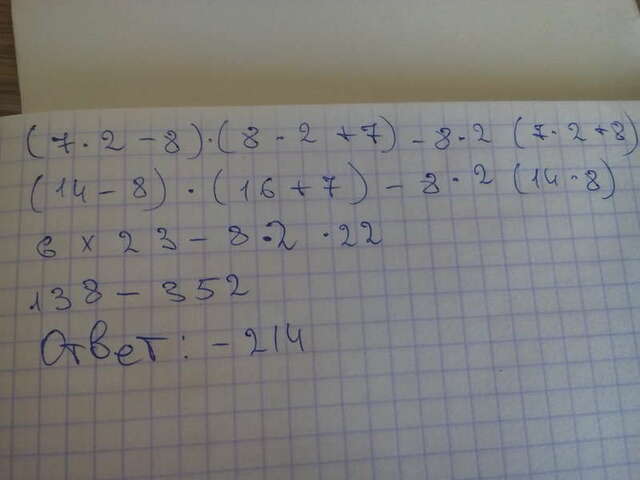 (7·2-8)·(8·2+7)-8·2 (7·2+8)
(14-8)·(16+7)-8·2 (14·8)
6 x 23-8·2·22
138-352
Ответ: -214